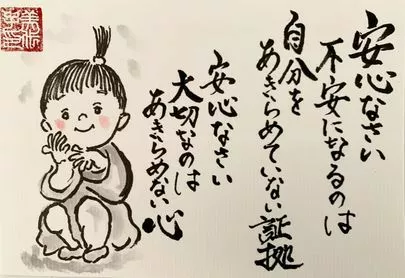 安心なさい
不安になるのは
自分を
あきらめていない証拠
安心なさい
大切なのは
あきらめない心